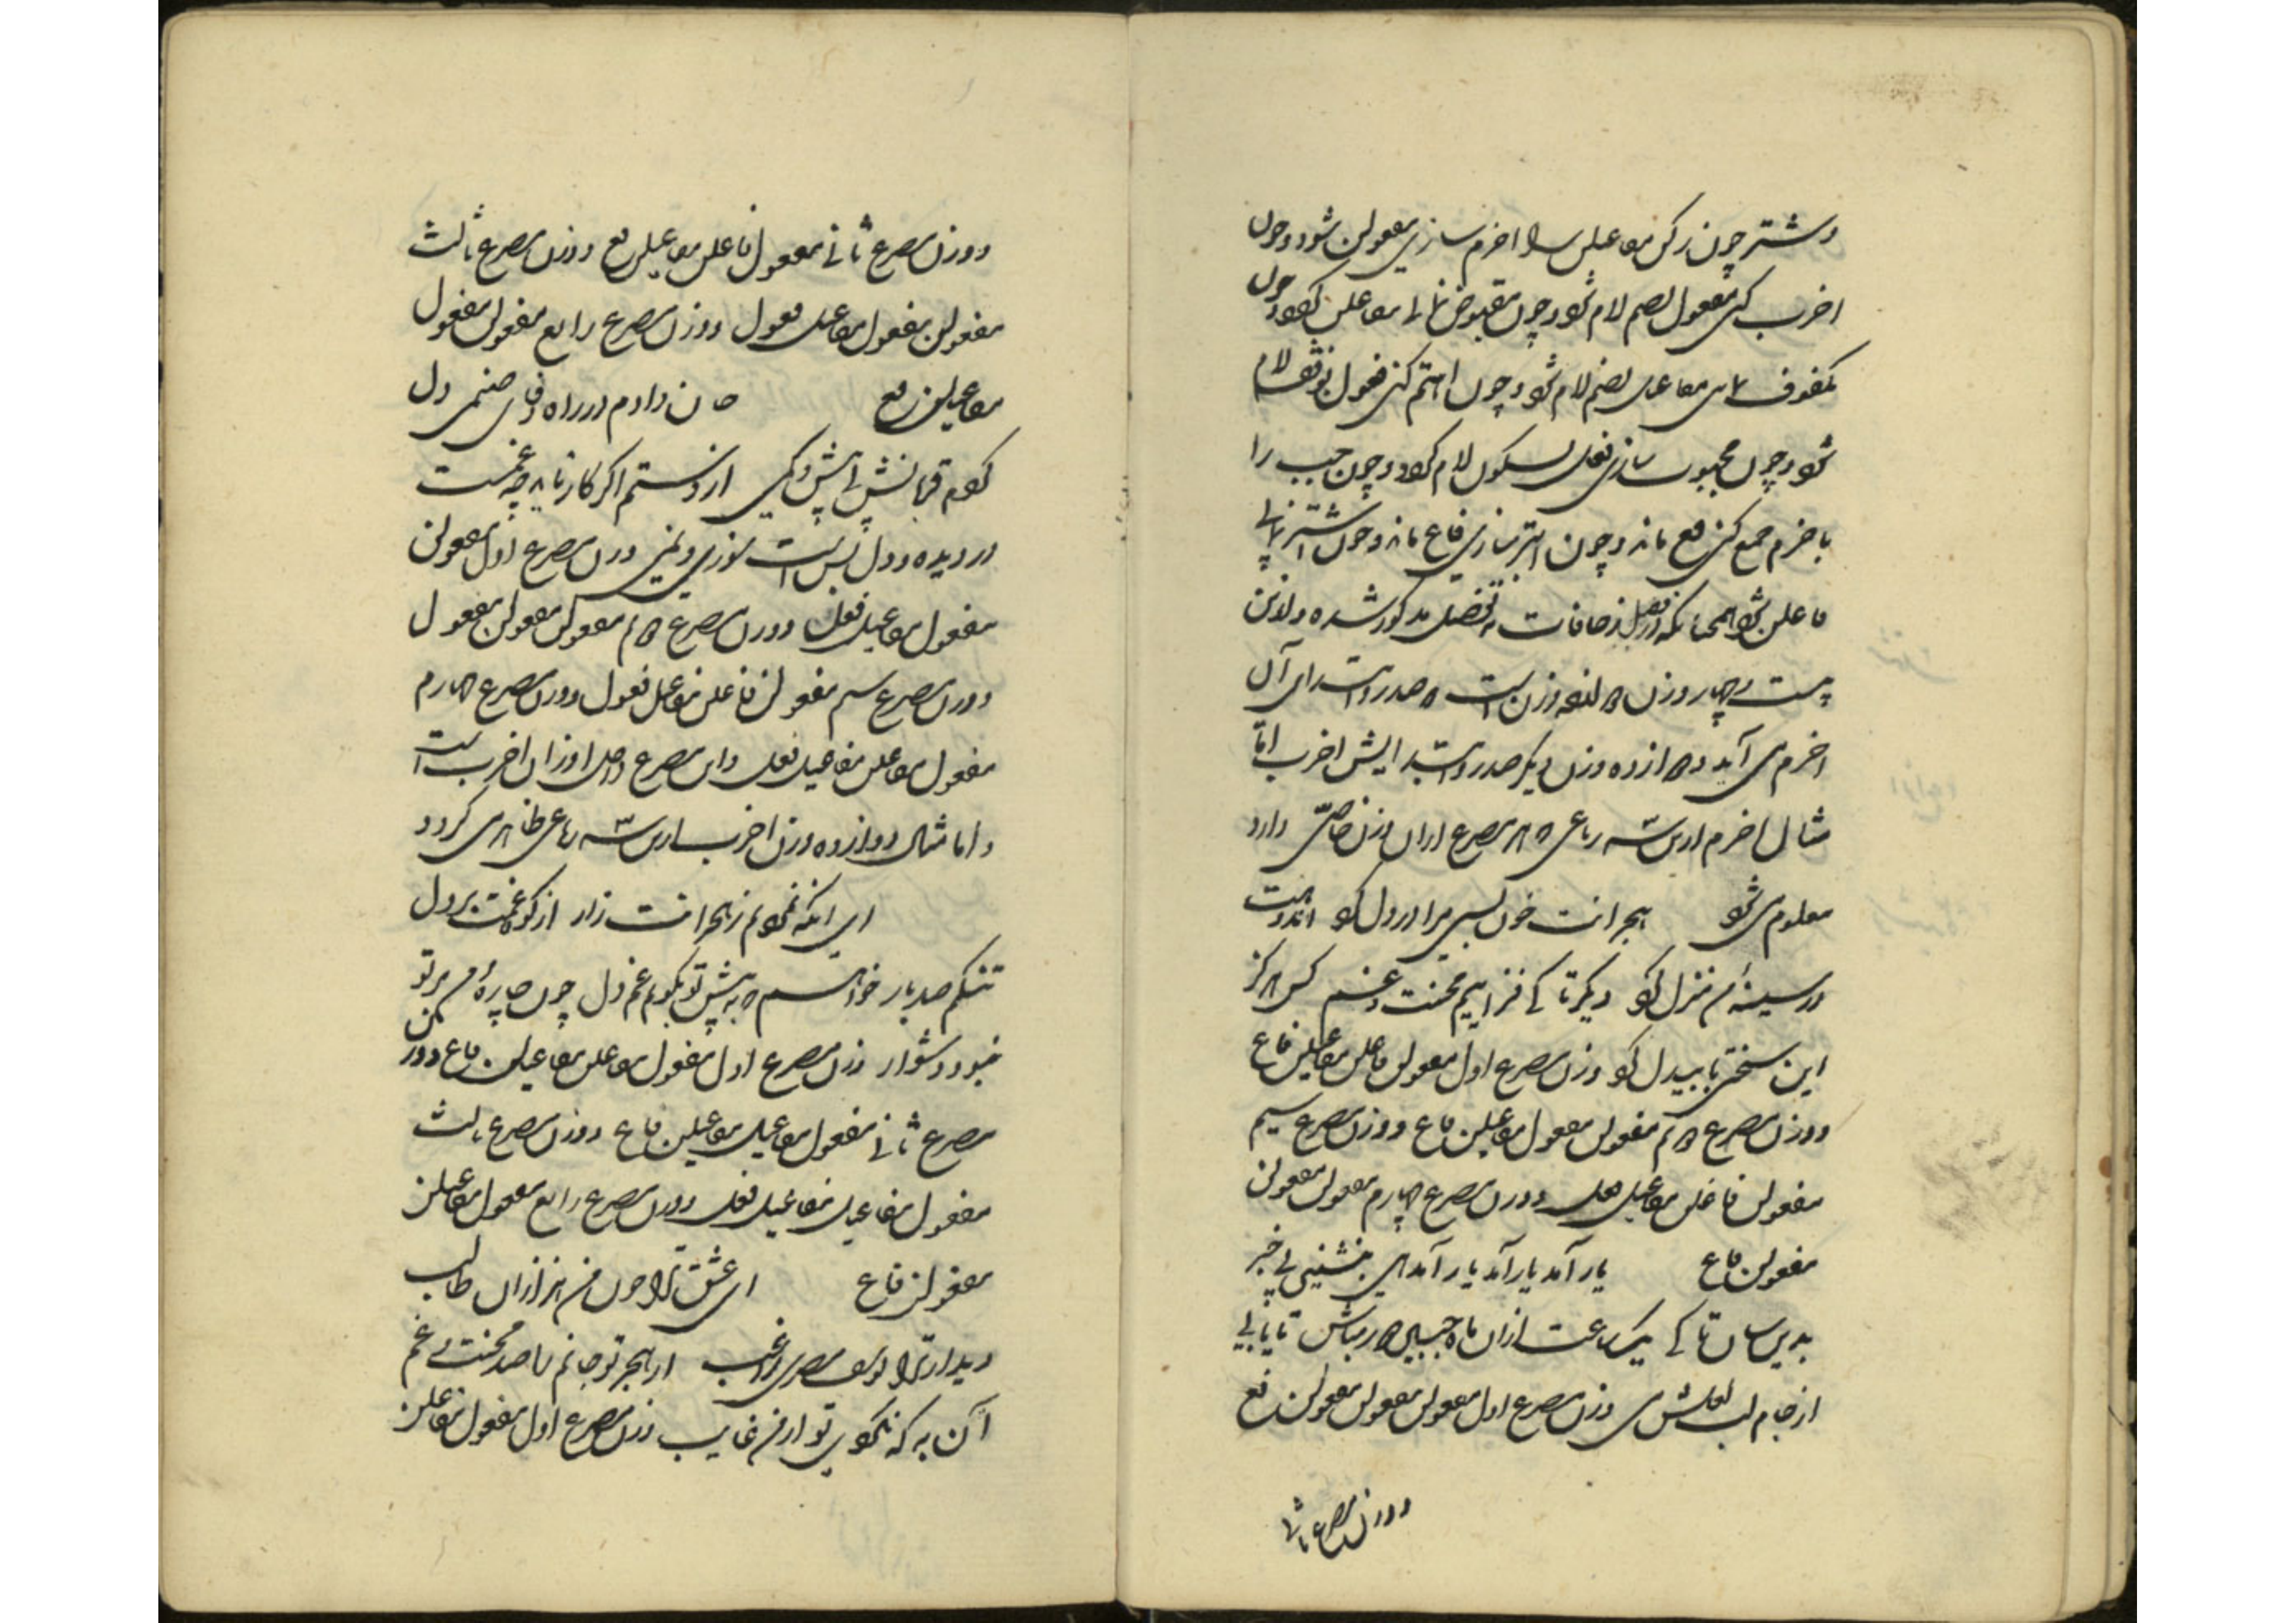 و شتر چون رکن مفاعیلن را اخرم سازی مفعولن شود و چون
اخرب کنی مفعول بضم لام شود و چون مقبوض نمائی مفاعلن گردد و چون
مکفوف مفاعیل بضم لام شود و چون اهتم کنی فعول بوقف لام
شود و چون مجبوب سازی فعل بسکون لام گردد و چون جب را
با خرم جمع کنی فع ماند و چون ابتر سازی فاع ماند و چون اشتر نمائی
فاعلن شود همچنانکه در فصل زحافات به تفصیل مذکور شده و از این
بیست و چهار وزن دوازده وزن است که صدر و ابتدای آن
اخرم می آید و دوازده وزن دیگر صدر و ابتدایش اخرب اما
مثال اخرم از این سه رباعی که هر مصرع از آن وزن خاصی دارد
معلوم می شود هجرانت خون بسی مرا در دل کرد اندوهت
در سینهٔ من منزل کرد دیگر تا کی فزاییم محنت و غم کس هرگز
این سختی با بیدل کرد وزن مصرع اول مفعولن فاعلن مفاعیلن فاع
و وزن مصرع دوم مفعولن مفعول مفاعیلن فاع و وزن مصرع سیم
مفعولن فاعلن مفاعیل فعل و وزن مصرع چهارم مفعولن مفعولن
مفعولن فاع یار آمد یار آمد یار آمد هی بنشینی بی خبر
بدین سان تا کی یک ساعت از آن ماه جبین دور مباش تا یابی
از جام لب لعلش می وزن مصرع اول مفعولن مفعولن مفعولن فع
و وزن مصرع ثانی
و وزن مصرع ثانی مفعول فاعلن مفاعیلن فع و وزن مصرع ثالث
مفعولن مفعول مفاعیل فعول و وزن مصرع رابع مفعولن مفعول
مفاعیلن فع جان دادم در راه وفای صنمی دل
کردم قربانش بی پیش و کمی از دستم اگر کار نیاید چه غمست
در دیده و دل بس است سوزی و نمی وزن مصرع اول مفعولن
مفعول مفاعیل فعل و وزن مصرع دوم مفعولن مفعولن مفعول
و وزن مصرع سیم مفعولن فاعلن مفاعیل فعول و وزن مصرع چهارم
مفعول مفاعلن مفاعیل فعل و این مصرع داخل اوزان اخرب است
و اما مثال دوازده وزن اخرب از این سه رباعی ظاهر می گردد
ای آنکه نمودم ز هجرانت زار از کوه غمت بر دل
تنگم صد بار خواهم که به پیش تو بگویم غم دل چون چارهٔ من بر تو
نبود دشوار وزن مصرع اول مفعول مفاعلن مفاعیلن فاع و وزن
مصرع ثانی مفعول مفاعیل مفاعیلن فاع و وزن مصرع ثالث
مفعول مفاعیل مفاعیل فعل و وزن مصرع رابع مفعول مفاعیلن
مفعولن فاع ای عشق ترا چون من هزاران طالب
دیدار ترا یوسف مصری راغب از هجر تو جانم با صد محنت و غم
آن به که نگویی تو از من غایب وزن مصرع اول مفعول مفاعلن